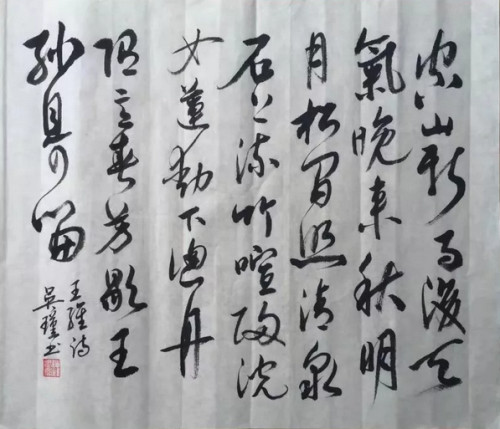 空山新雨後天
氣晚来秋明
月松間照清泉
石上流竹喧歸浣
女蓮動下漁舟
随意春芳歇王
孫自可留
王維詩
吴瑾书